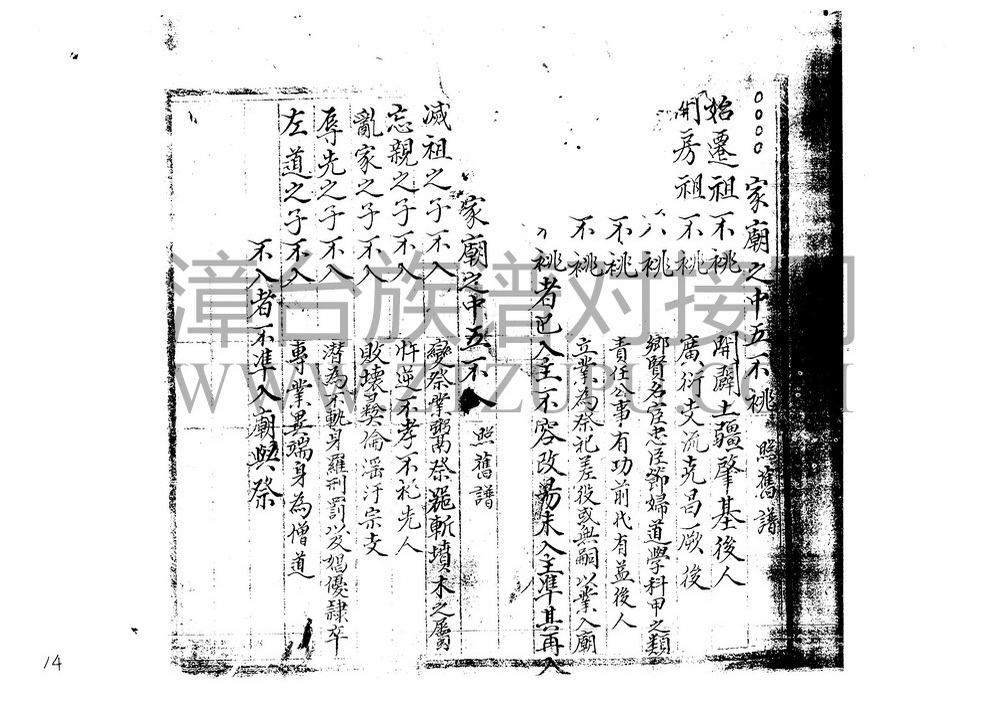 家廟之中五不祧 照舊譜
始遷祖不祧 開闢土疆肇基後人
開房祖不祧 廣衍支流克昌厥後
不祧 鄉賢名宦忠臣節婦道學科甲之類
不祧 責任公事有功前代有益後人
不祧 立業為祭祀差役或無嗣以業入廟
祧者已入主不容改易未入主準其再入
家廟之中五不入 照舊譜
滅祖之子不入 變祭業鬻祭器斬墳木之屬
忘親之子不入 忤逆不孝不祀先人
亂家之子不入 敗壞彝倫淫汙宗支
辱先之子不入 潛為不軌身羅刑罰以及娼優隸卒
左道之子不入 專業異端身為僧道
不入者不準入廟與祭
漳台族谱对接网
WWW.ZTZUPU.COM
14